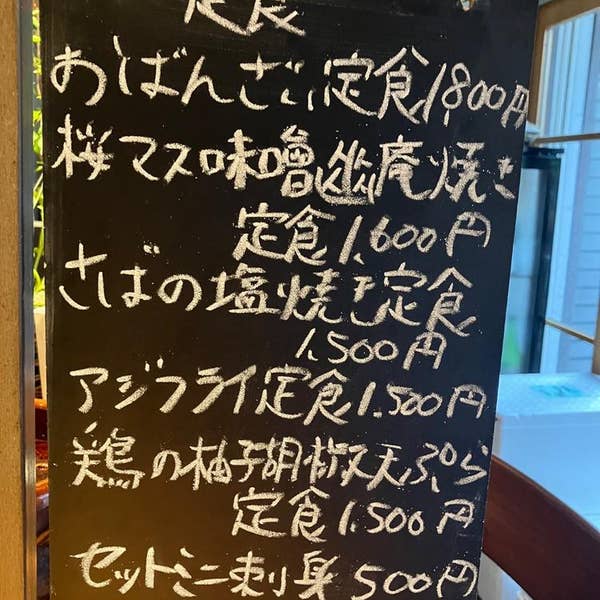 定食
おばんざい定食1,800円
桜マス味噌幽庵焼き
定食1,600円
さばの塩焼き定食
1,500円
アジフライ定食1,500円
鶏の柚子胡椒天ぷら
定食1,500円
セットミニ刺身500円